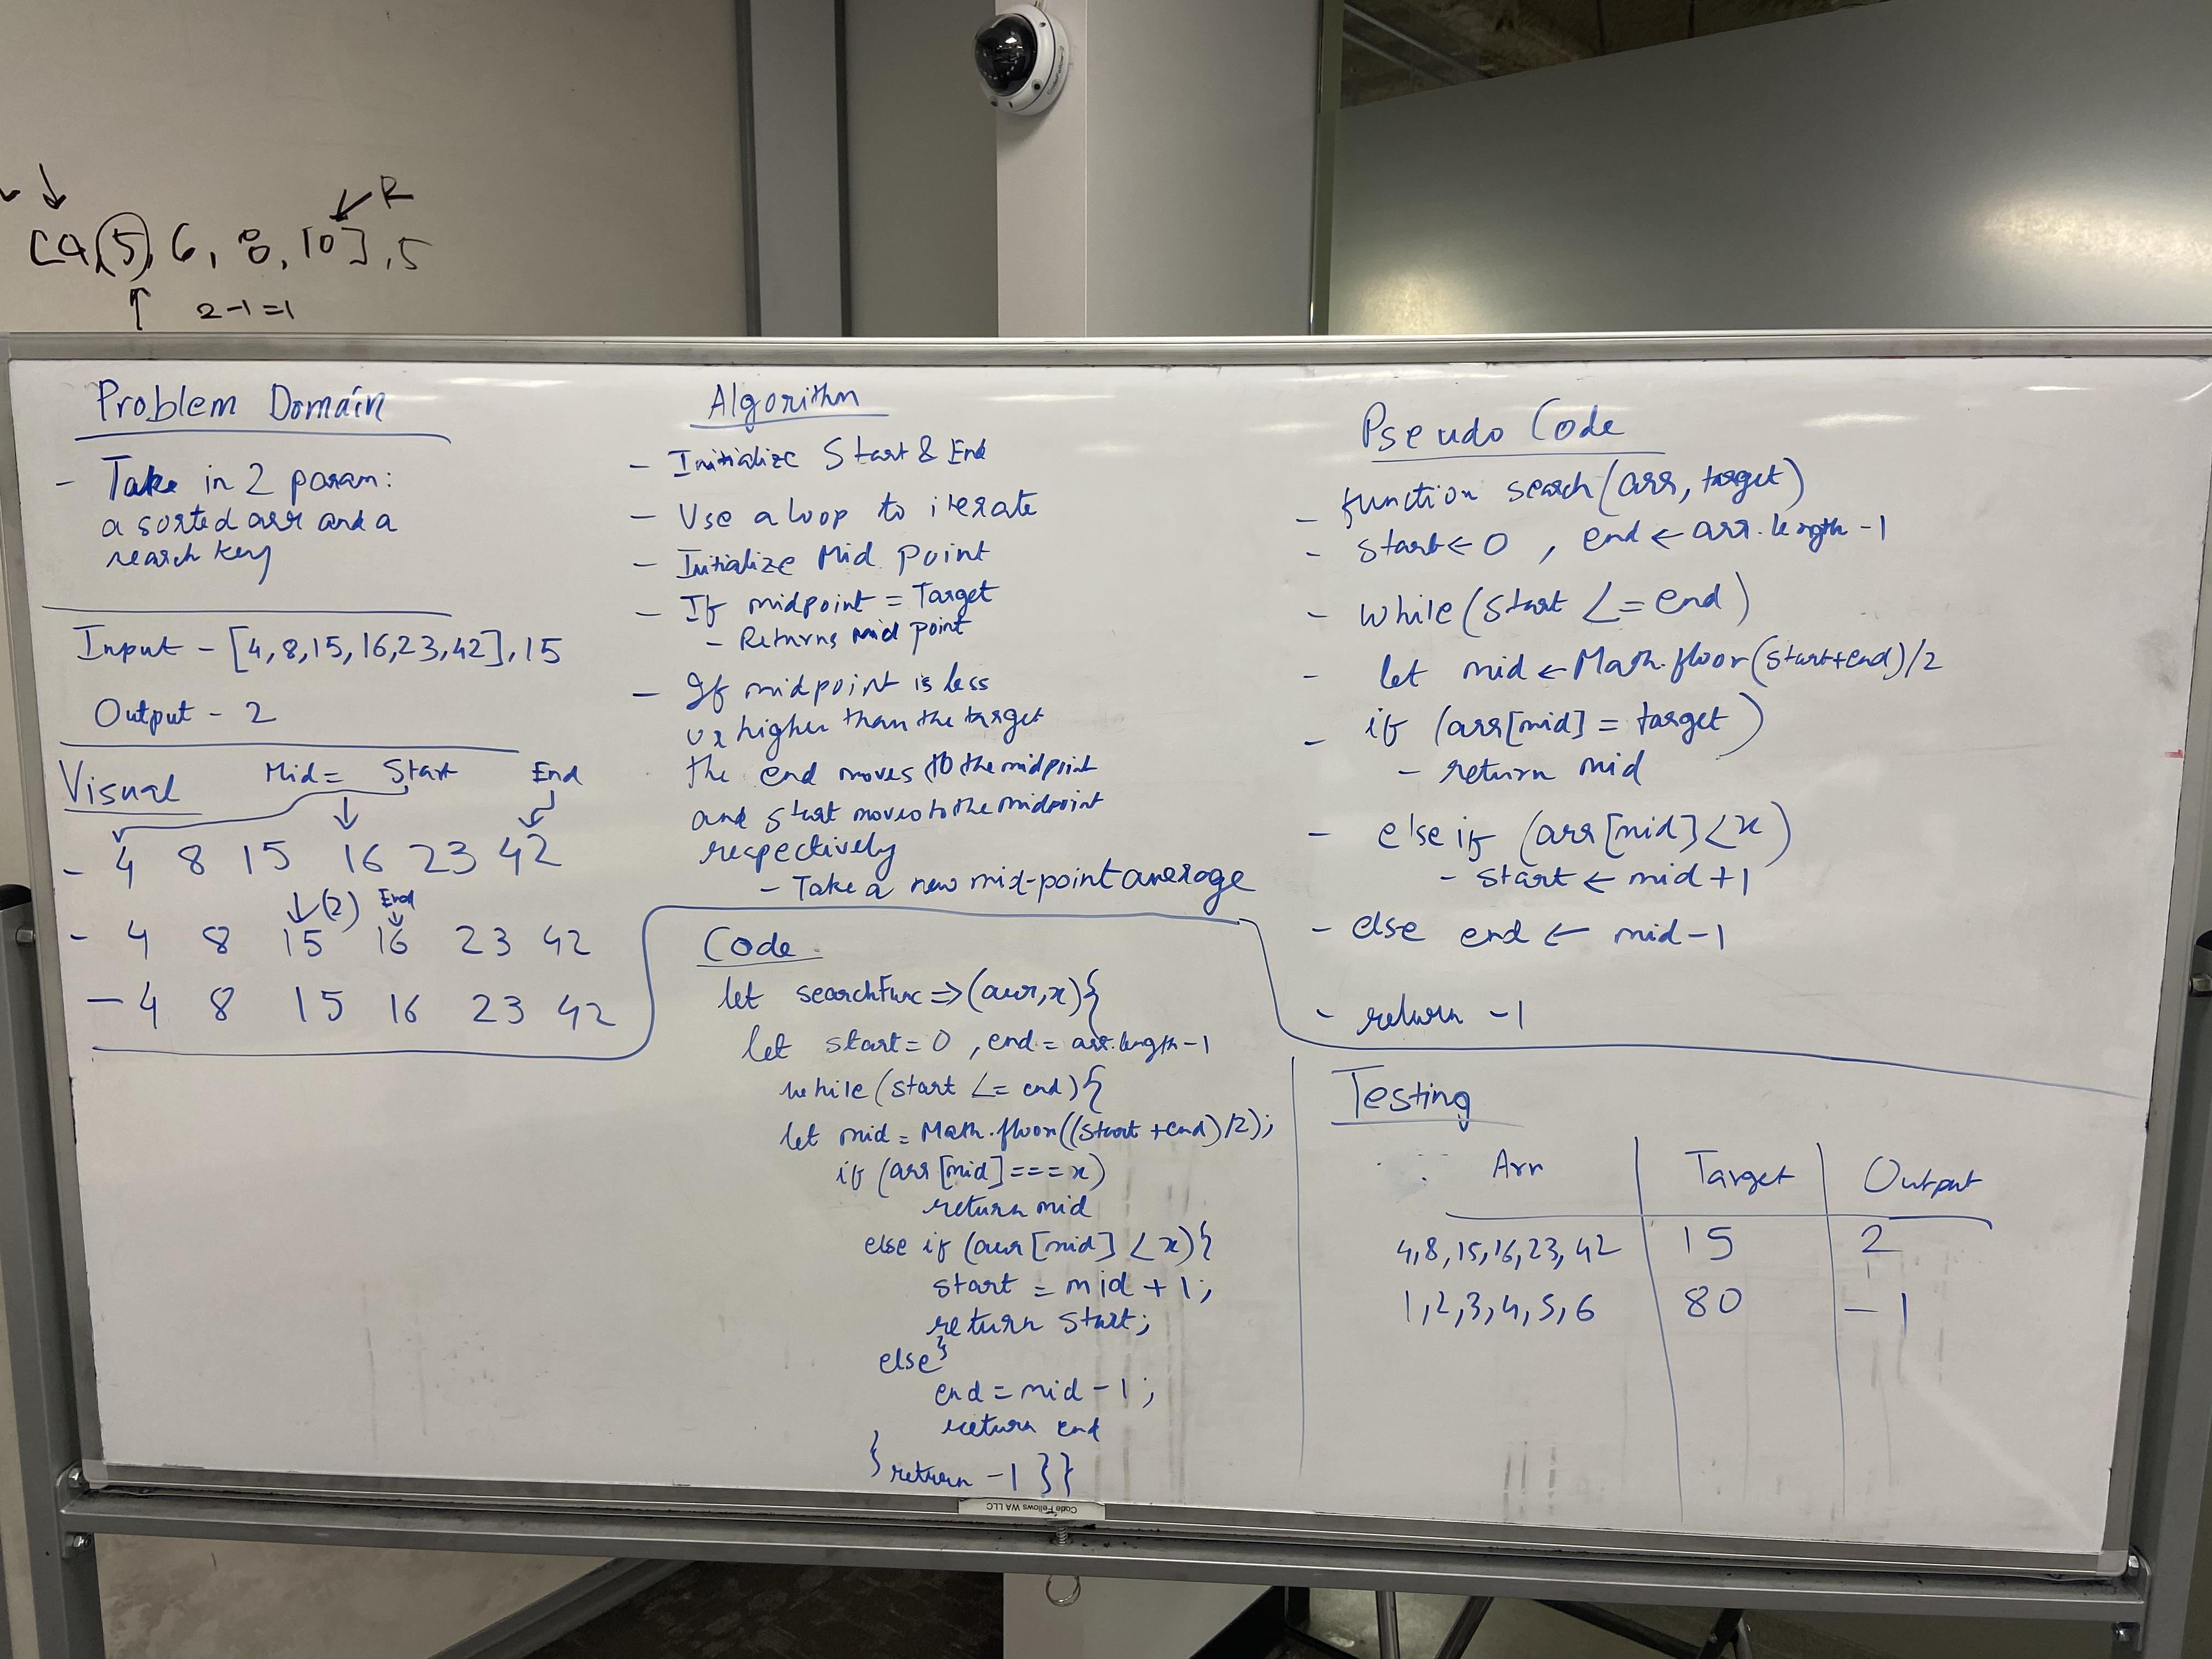 [4, 5, 6, 8, 10], 5
R
2-1=1
Problem Domain
- Take in 2 param:
a sorted arr and a
search key
Input - [4,8,15,16,23,42], 15
Output - 2
Visual
Mid= Start End
- 4 8 15 16 23 42
(2) End
- 4 8 15 16 23 42
- 4 8 15 16 23 42
Algorithm
- Initialize Start & End
- Use a loop to iterate
- Initialize Mid point
- If midpoint = Target
- Returns mid point
- If midpoint is less
or higher than the target
the end moves to the midpoint
and start moves to the midpoint
respectively
- Take a new mid-point average
Code
let searchFunc => (arr,x){
let start=0, end = arr.length-1
while (start <= end){
let mid = Math.floor((start+end)/2);
if (arr[mid]===x)
return mid
else if (arr[mid] < x){
start = mid + 1;
return start;
else}
end = mid - 1;
return end
} return -1 }}
Pseudo Code
- function search(arr, target)
- start ← 0 , end ← arr.length-1
- while (start <= end)
- let mid ← Math.floor(start+end)/2
- if (arr[mid] = target)
- return mid
- else if (arr[mid] < x)
- start ← mid + 1
- else end ← mid-1
- return -1
Testing
Arr Target Output
4,8,15,16,23,42 15 2
1,2,3,4,5,6 80 -1
Code Fellows WA LLC